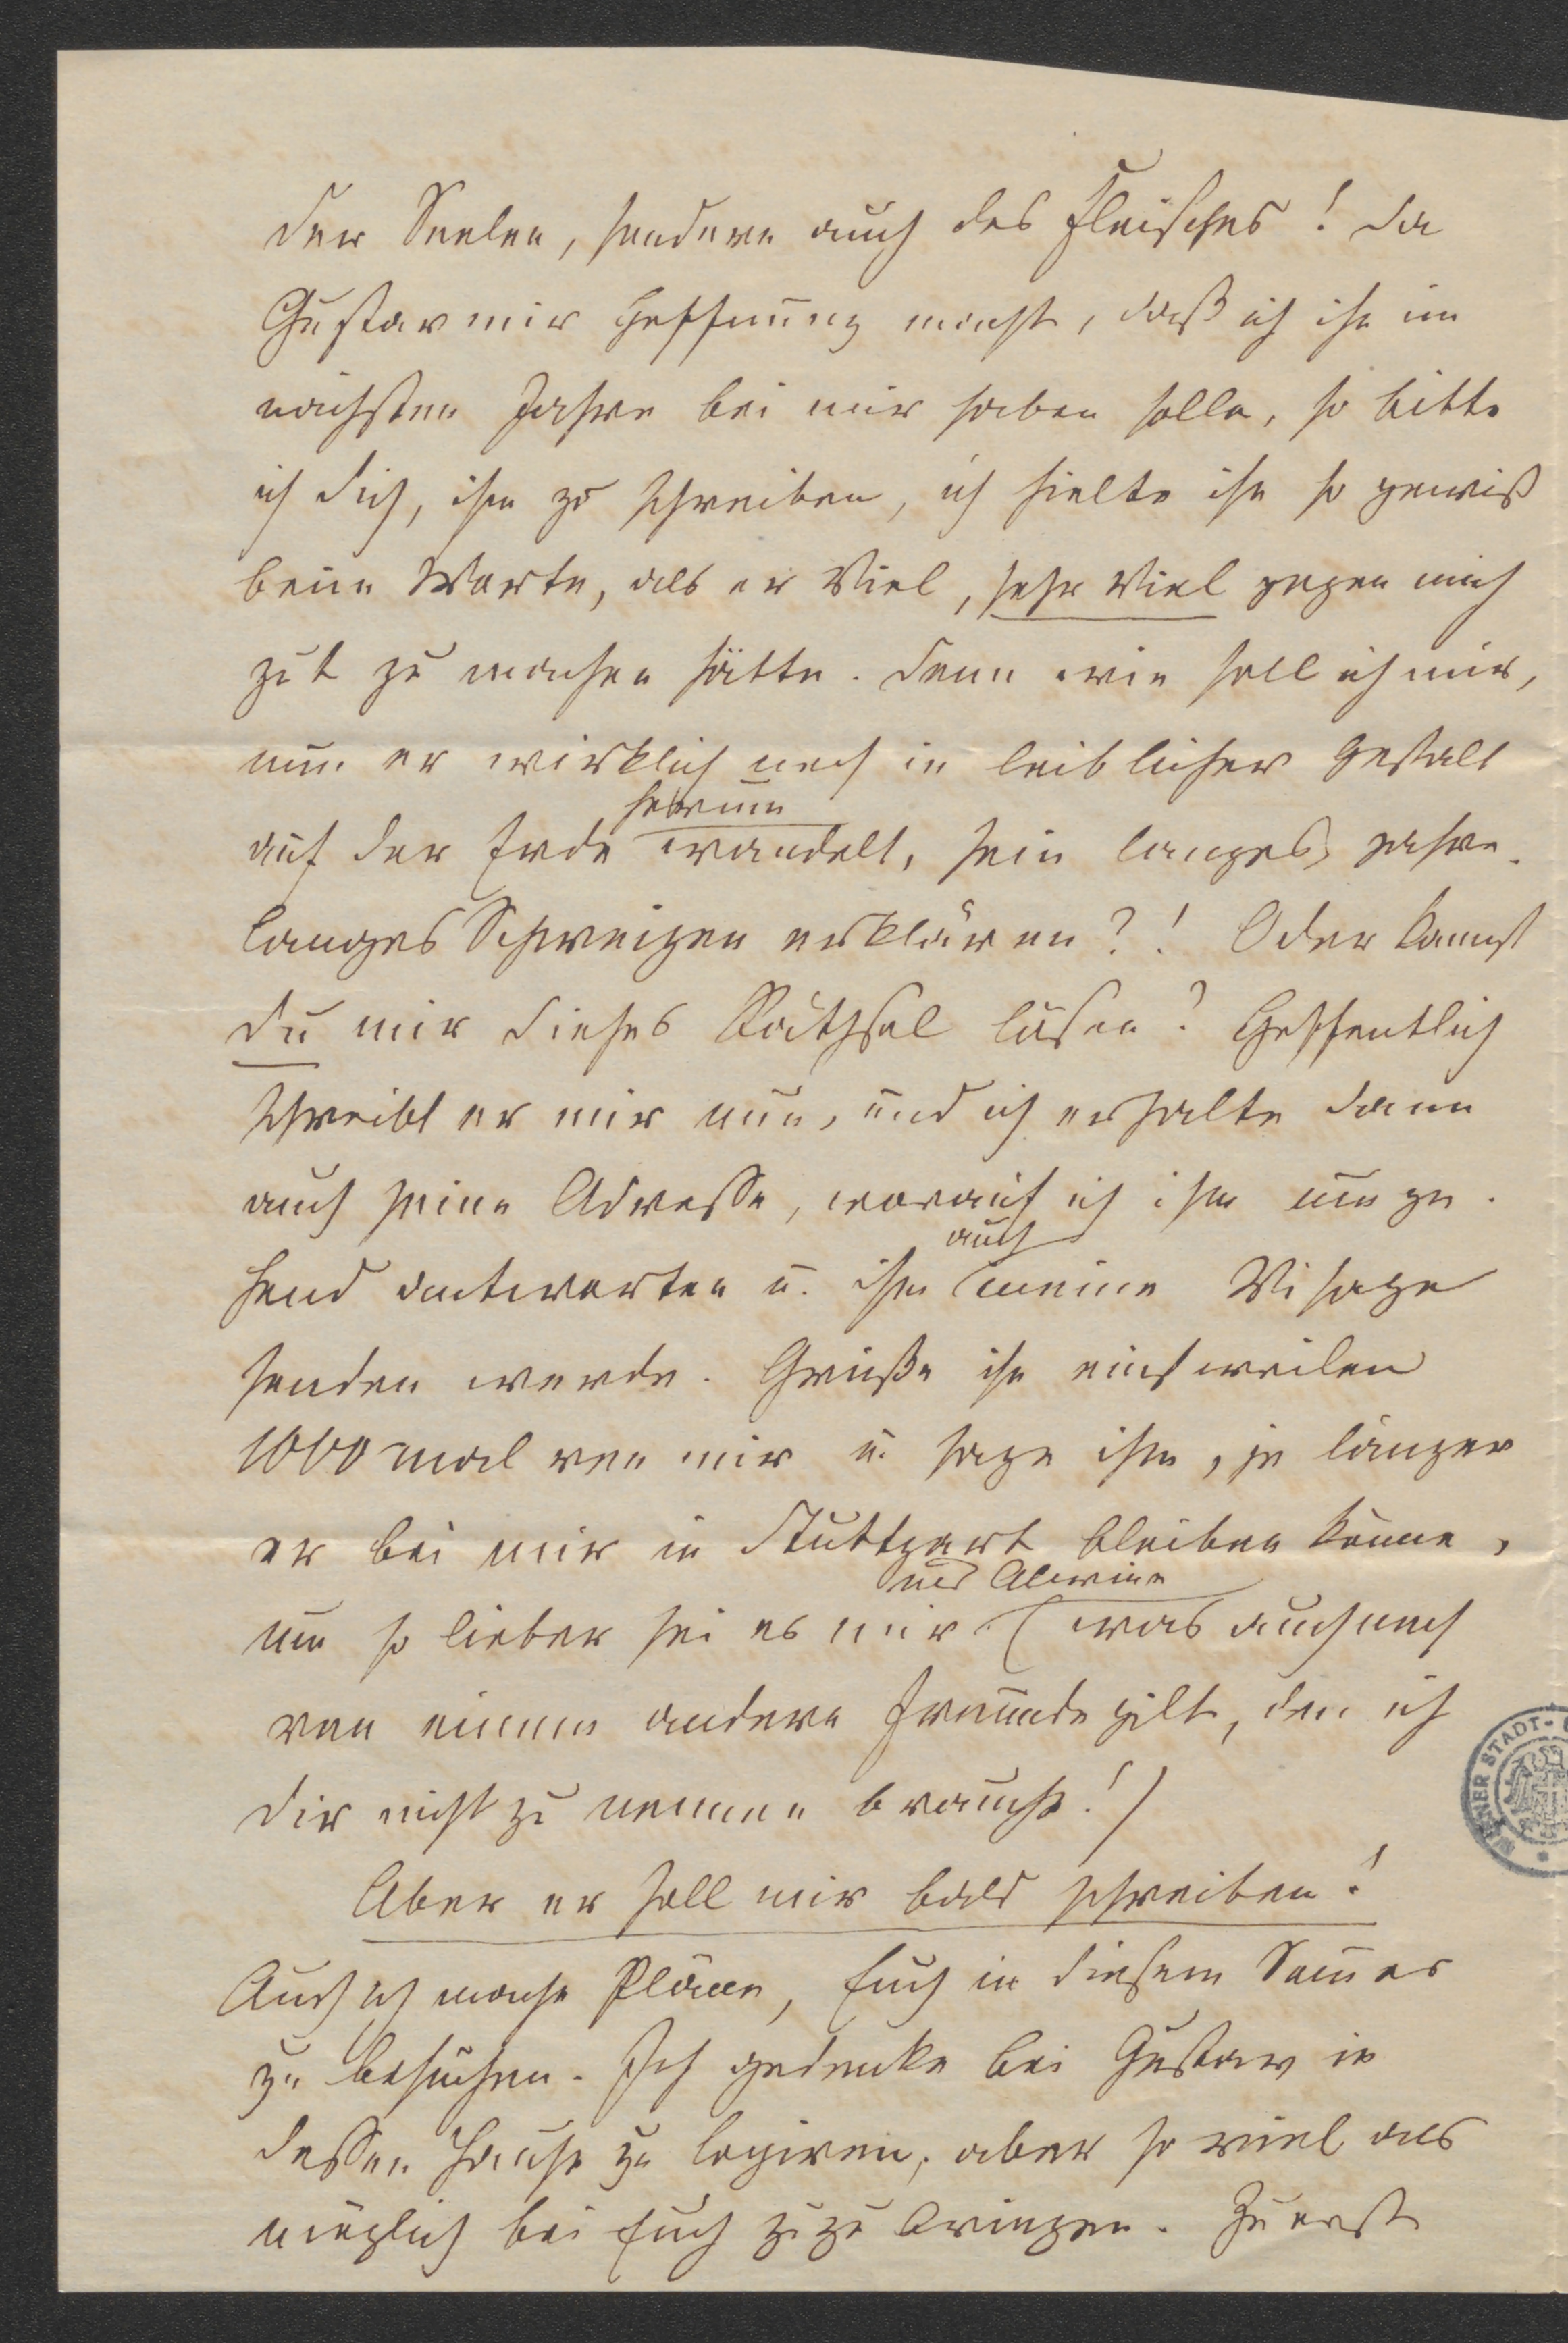 der Seelen, sondern auch des Fleisches! Da
Gustav mir Hoffnung macht, daß ich ihn im
nächsten Jahre bei mir haben solle, so bitte
ich dich, ihm zu schreiben, ich hielte ihn so gewiß
beim Worte, als er Viel, sehr Viel gegen mich
gut zu machen hätte. Denn wie soll ich mir,
nun er wirklich noch in leiblicher Gestalt
herum
auf der Erde wandelt, sein langes, jahre-
langes Schweigen erklären?! Oder kannst
Du mir dieses Räthsel lösen? Hoffentlich
schreibt er mir nun, und ich erhalte dann
auch seine Adresse, worauf ich ihm umge-
auch
hend antworten u. ihm meine Visage
senden werde. Grüße ihn einstweilen
1000 mal von mir u. sage ihm, je länger
er bei mir in Stuttgart bleiben könne,
und Alwine
um so lieber sei es mir (was auch noch
von einem andern Freunde gilt, den ich
Dir nicht zu nennen brauche!)
Aber er soll mir bald schreiben!
Auch ich mache Pläne, Euch in diesem Som̄er
zu besuchen. Ich gedenke bei Gustav in
dessen Hause zu logiren, aber so viel als
möglich bei Euch zuzubringen. Zuerst
WIENER STADT-